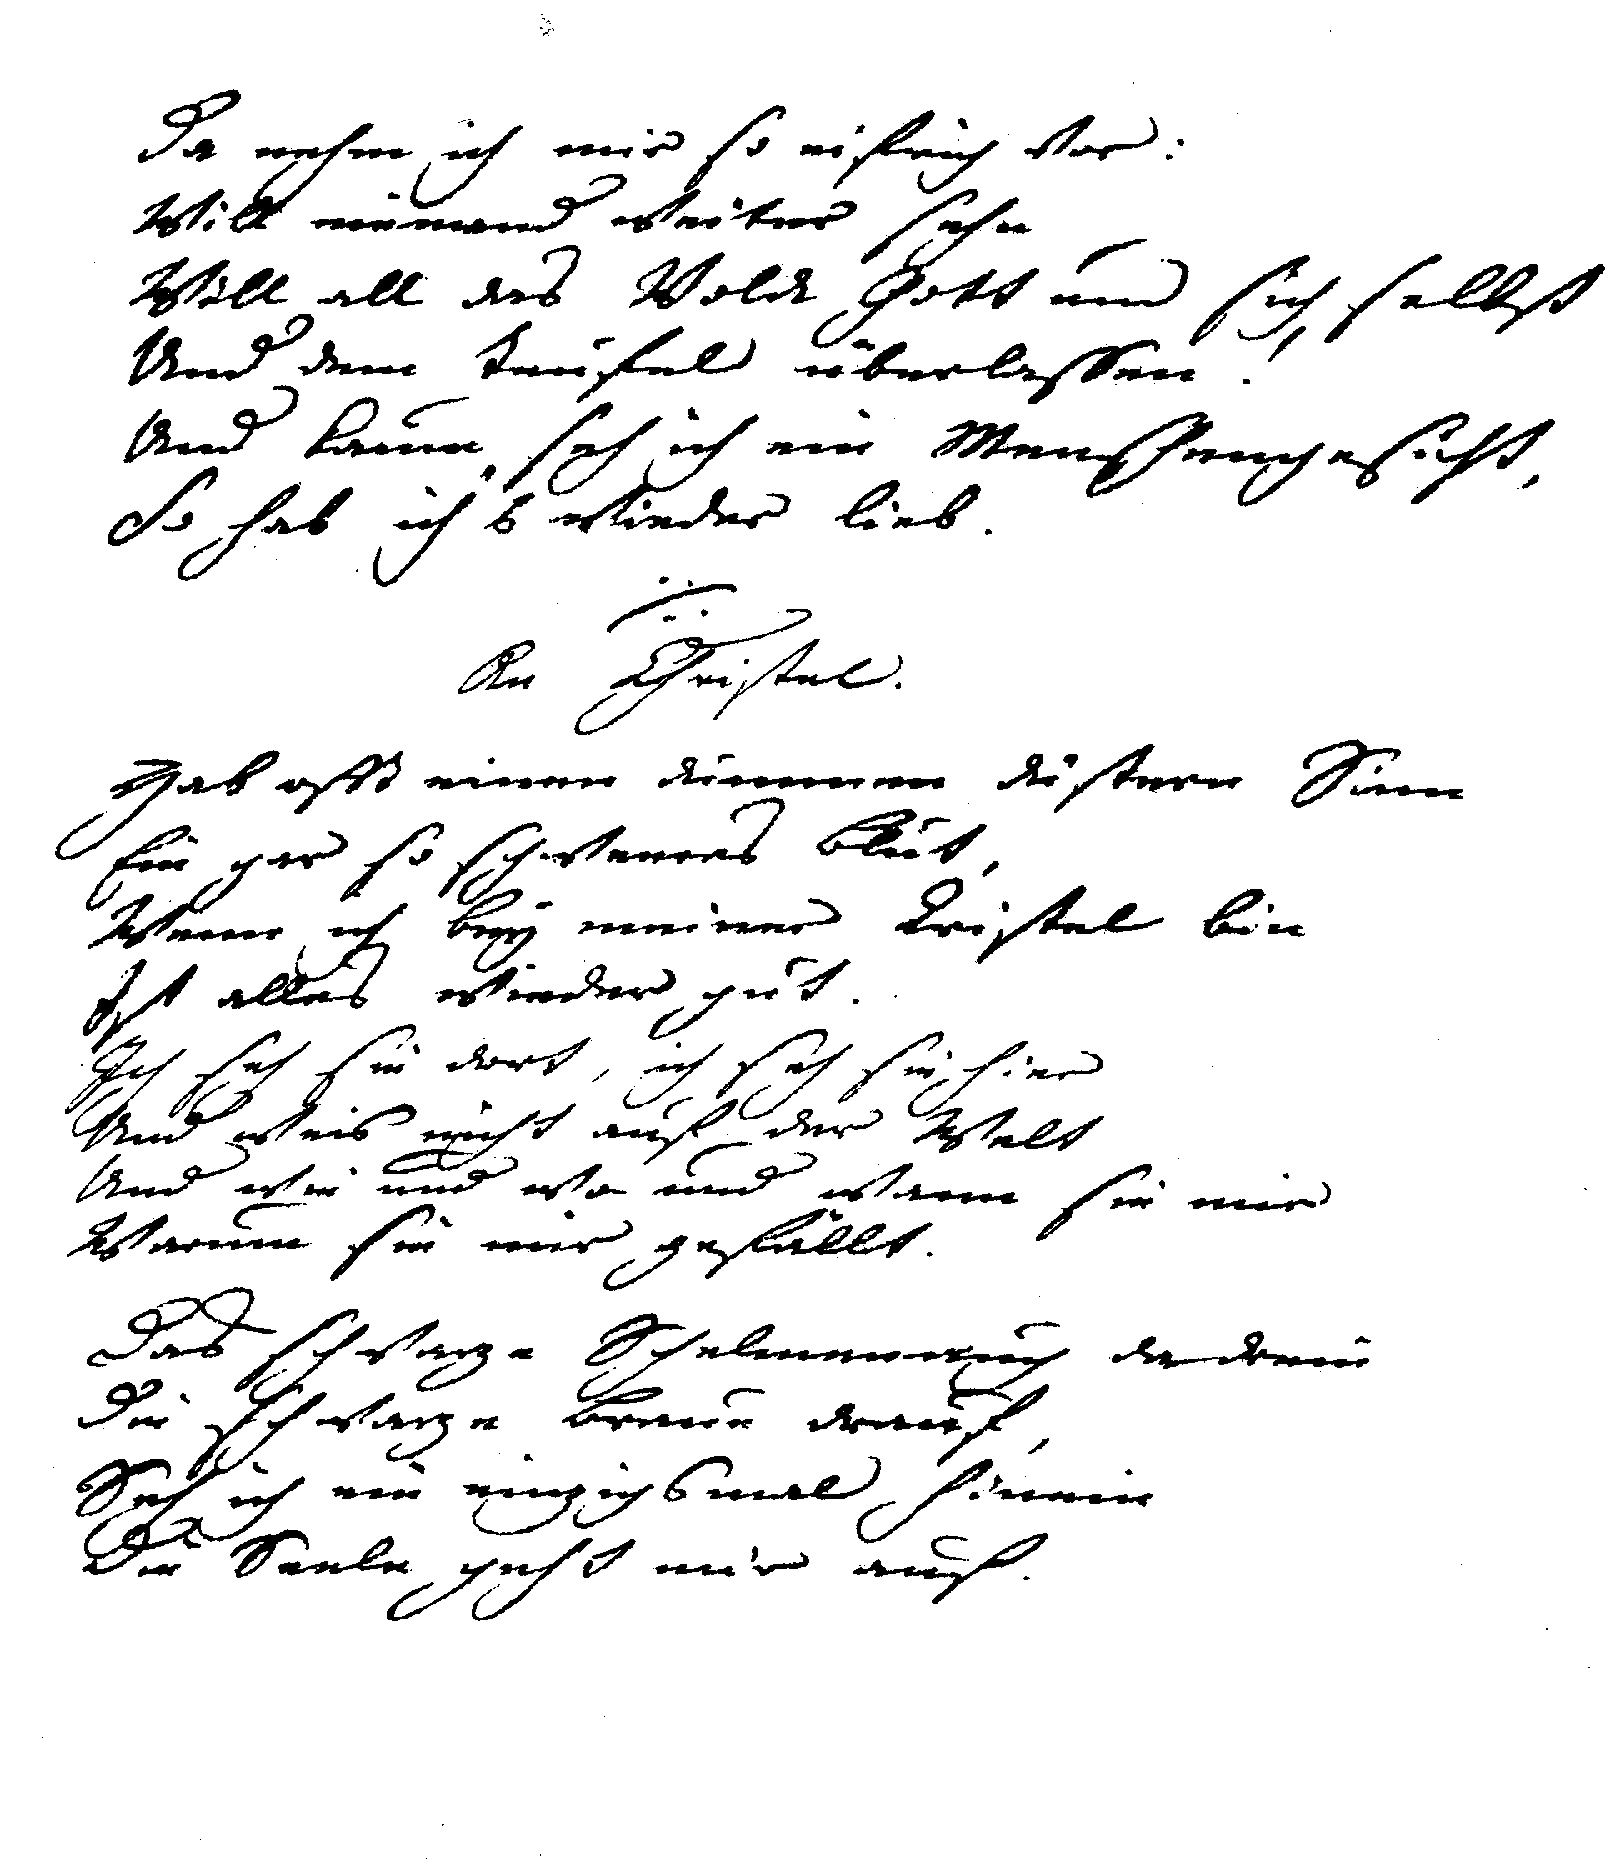 Da nehm ich mir so eifrich vor:
Will niemand weiter sehn
Will all das Volck Gott und sich selbst
Und dem Teufel überlassen!
Und kaum seh ich ein Menschengesicht,
So hab ich's wieder lieb.
An Christel.
Hab offt einen dummen düstern Sinn
Ein gar so schweeres Blut,
Wenn ich bey meiner Cristel bin
Ist alles wieder gut.
Ich seh sie dort, ich seh sie hier
Und weis nicht auf der Welt
Und wie und wo und wann sie mir
Warum sie mir gefällt.
Das schwarze Schelmenaug da drein
Die schwarze Braue drauf,
Seh ich ein einzigsmal hinein
Die Seele geht mir auf.